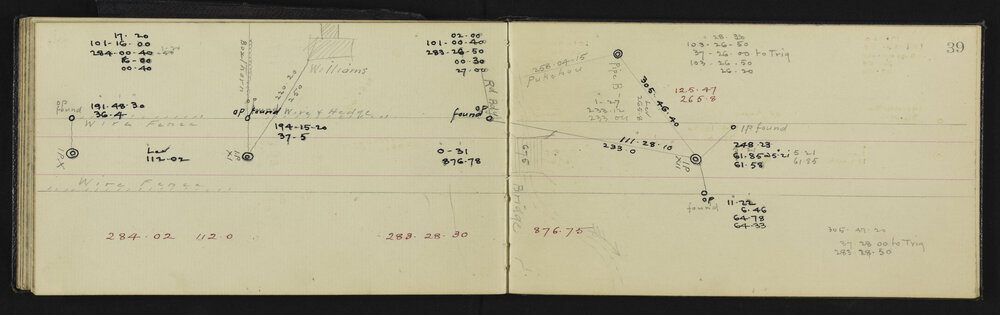 17·20
101-16·00
284-00·40
16-00
00·40
Boxthorn
220
250
Williams
02·00
101-00·40
283·26·50
00·30
27·00
OP
found
191·48·30
36·4
Wire Fence
OP found
Wire & Hedge
194-15-20
37·5
found OP
Rd Bdy
IPX
Led
112·02
IP
XI
0-31
876·78
Wire Fence
284·02 112·0
283·28·30
39
28·30
103·26·50
37-26·00 to Trig
103·26·50
26·20
258·04·15
Pukehou
Pipe B
305·46·40
Led
265·8
125·47
265·8
1-27
IP found
111·28·10
233·0
676
IP
XII
248·23
61·85
61·58
5·21
61·85
Bridge
OP
found
11·22
6·46
64·78
64·33
876·75
305·47·20
37 28 00 to Trig
283·28·50